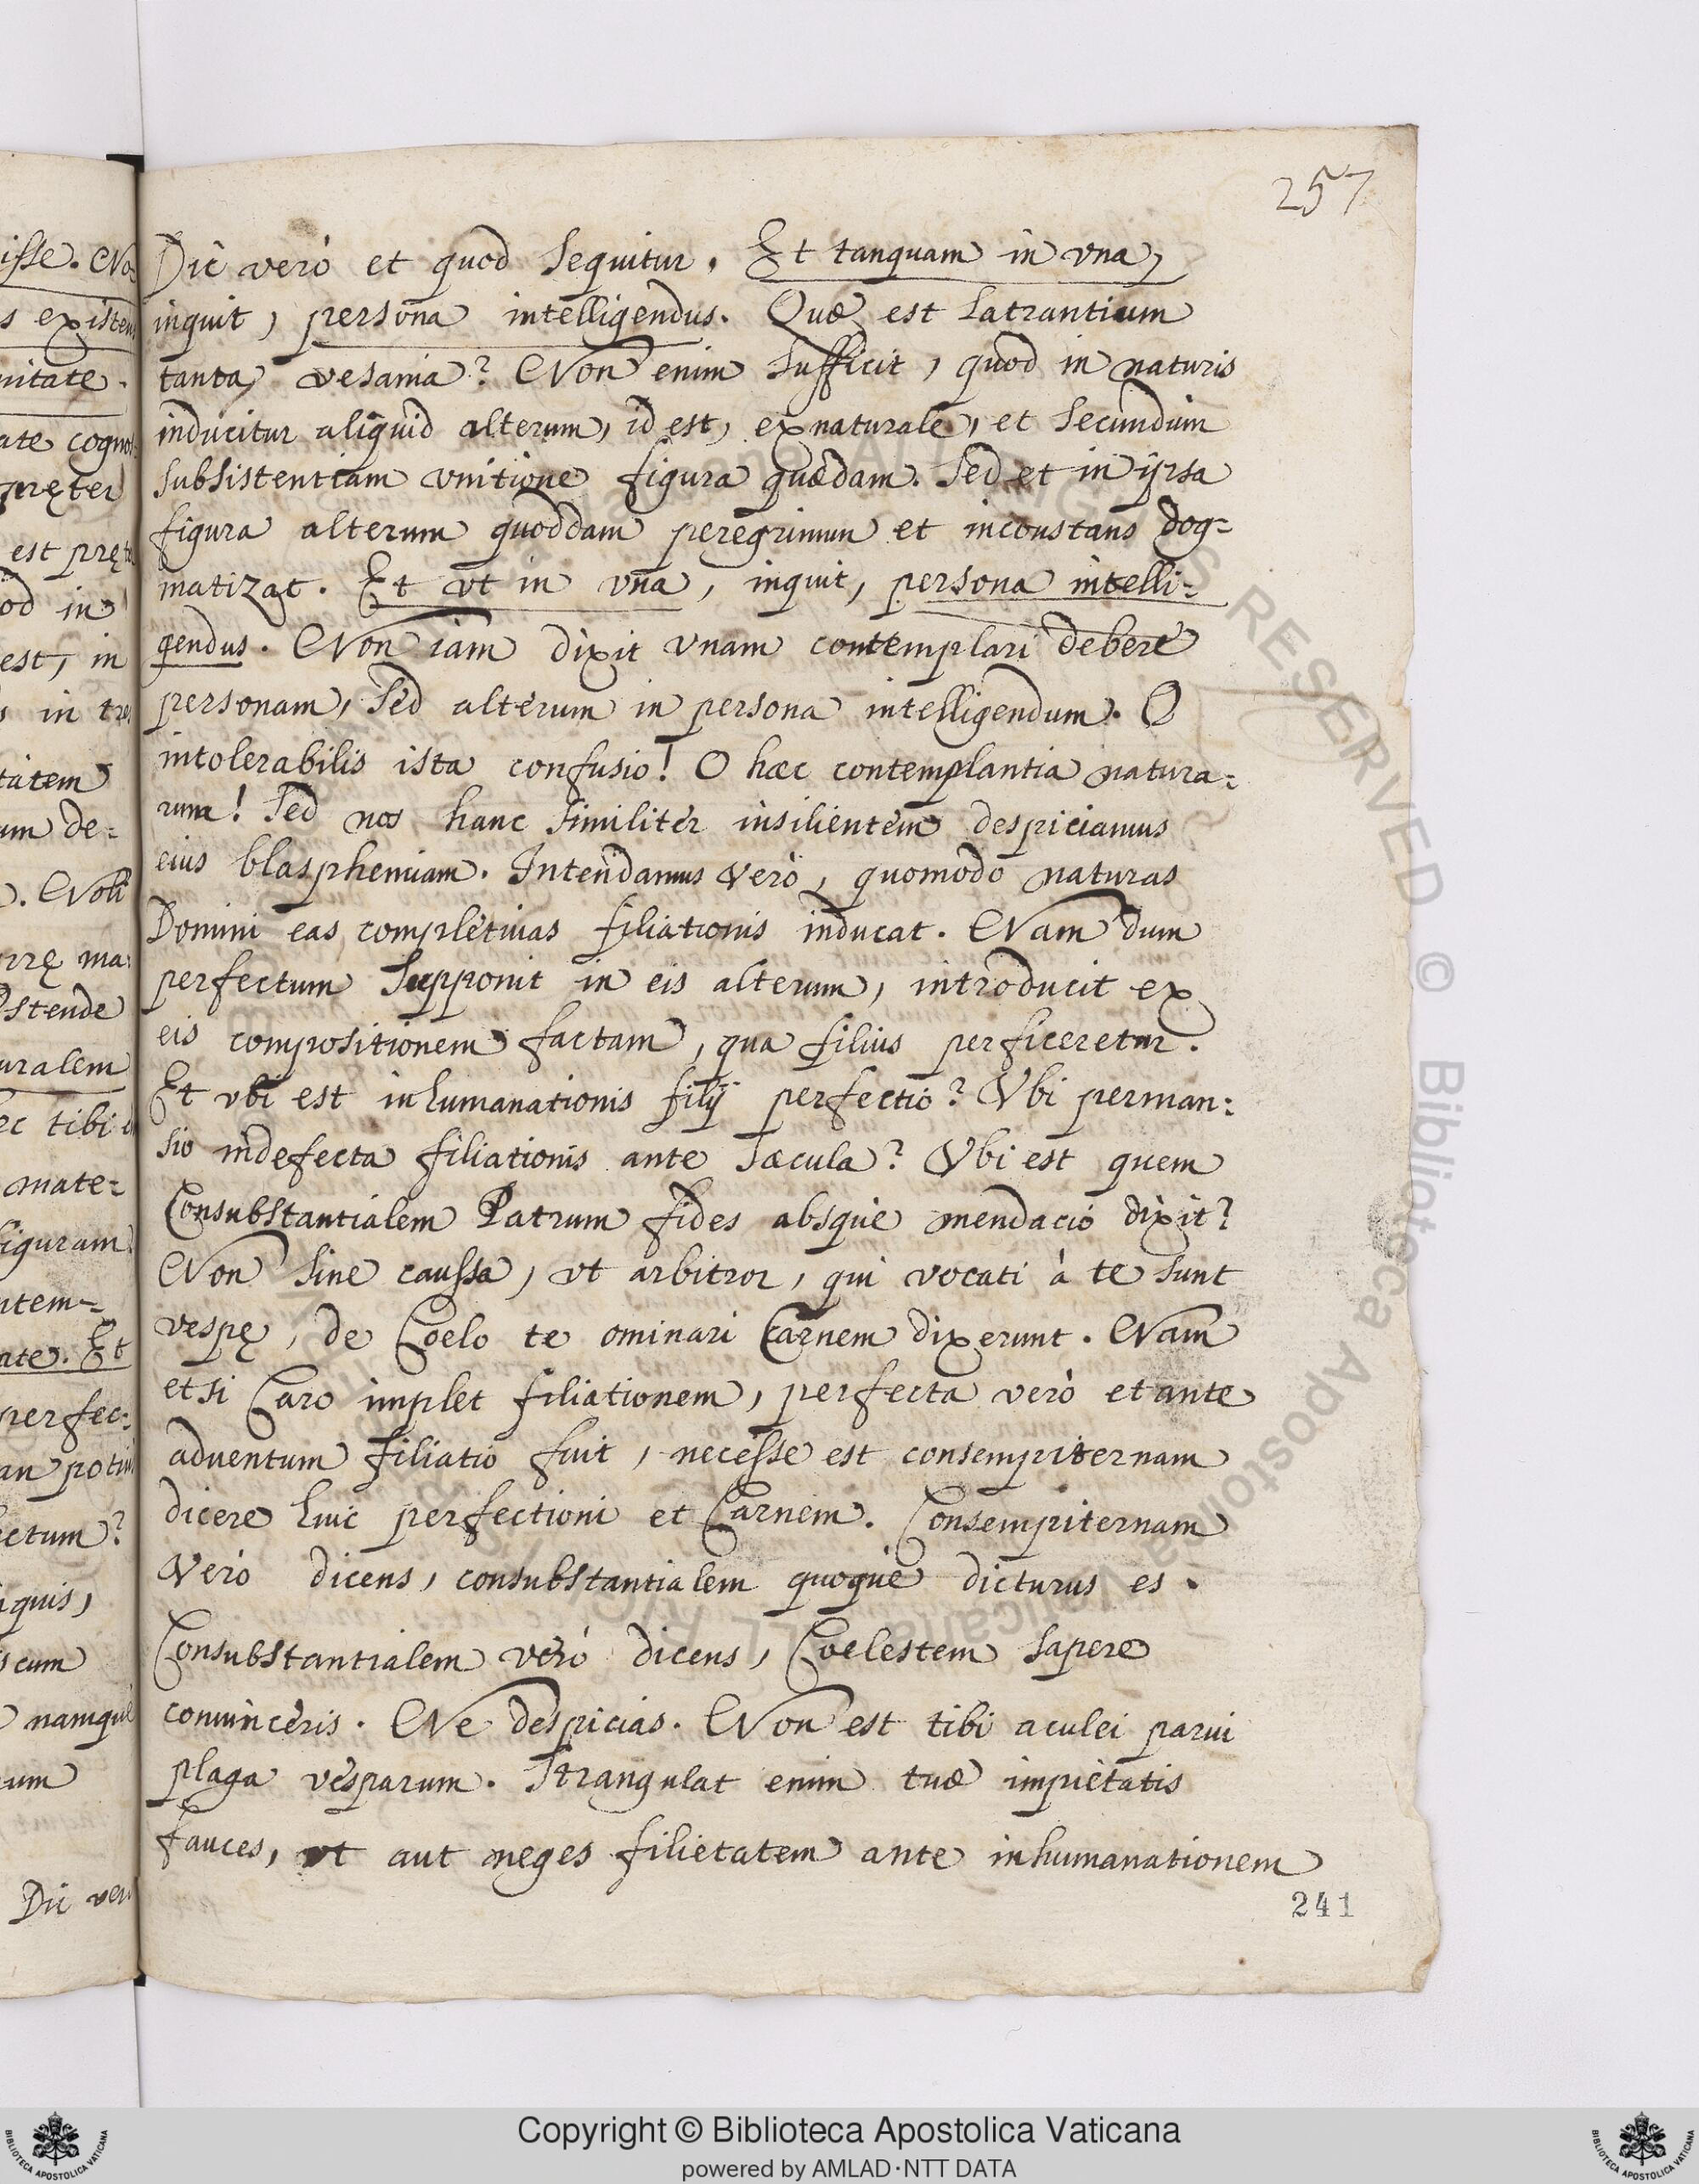 257
Dic verò et quod sequitur. Et tanquam in vna,
inquit, persona intelligendus. Quæ est latrantium
tanta vesania? Non enim sufficit, quod in naturis
inducitur aliquid alterum, id est, ex naturale, et secundùm
subsistentiam vnitione figura quædam. Sed et in ipsa
figura alterum quoddam peregrinum et inconstans dog=
matizat. Et vt in vna, inquit, persona intelli=
gendus. Non iam dixit vnam contemplari debere
personam, sed alterum in persona intelligendum. O
intolerabilis ista confusio! O hæc contemplantia natura=
rum! Sed nos hanc similiter insilientem despiciamus
eius blasphemiam. Intendamus verò, quomodo naturas
Domini eas completiuas filiationis inducat. Nam dum
perfectum supponit in eis alterum, introducit ex
eis compositionem factam, qua filius perficeretur.
Et vbi est inhumanationis filij perfectio? Vbi perman=
sio indefecta filiationis ante sæcula? Vbi est quem
Consubstantialem Patrum fides absque mendacio dixit?
Non sine caussa, vt arbitror, qui vocati à te sunt
vespę, de Coelo te ominari Carnem dixerunt. Nam
et si Caro implet filiationem, perfecta verò et ante
aduentum filiatio fuit, necesse est consempiternam
dicere huic perfectioni et Carnem. Consempiternam
Verò dicens, consubstantialem quoque dicturus es.
Consubstantialem verò dicens, Coelestem sapere
conuinceris. Ne despicias. Non est tibi aculei parui
plaga vesparum. Strangulat enim tuæ impietatis
fauces, vt aut neges filietatem ante inhumanationem
241
isse. No=
s existen
nitate.
ate cognos
pręter
est pręte
od in
est, in
s in tre
tatem
um de=
. Noli
rrę ma
Ostende
uralem
ec tibi
mate=
figuram
ntem=
ate. Et
perfec=
an potiu
ectum?
iquis,
s cum
namque
um
Dic vero
Copyright © Biblioteca Apostolica Vaticana
powered by AMLAD·NTT DATA